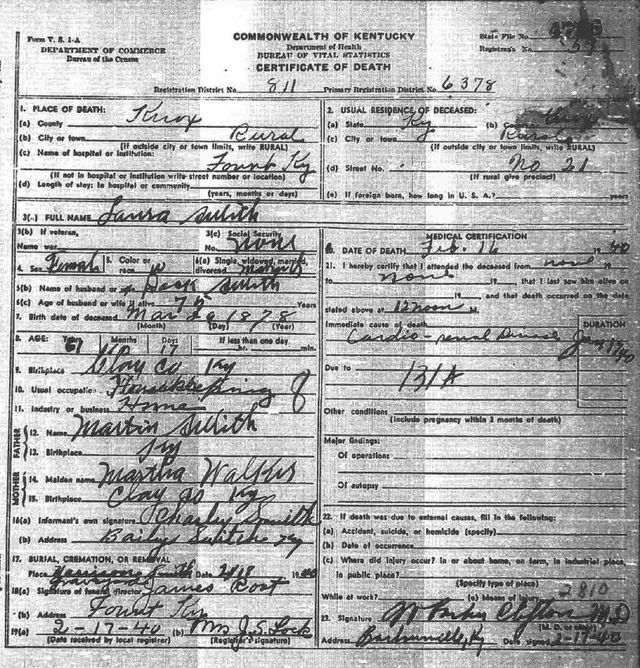 Form V. S. 1-A
DEPARTMENT OF COMMERCE
Bureau of the Census
COMMONWEALTH OF KENTUCKY
Department of Health
BUREAU OF VITAL STATISTICS
CERTIFICATE OF DEATH
State File No.
Registrar's No.
Registration District No. 811 Primary Registration District No. 6378
1. PLACE OF DEATH:
(a) County Knox
(b) City or town Rural
(If outside city or town limits, write RURAL)
(c) Name of hospital or institution: Fount Ky
(If not in hospital or institution write street number or location)
(d) Length of stay: In hospital or community
(years, months or days)
2. USUAL RESIDENCE OF DECEASED:
(a) State Ky (b)
(c) City or town Rural
(If outside city or town limits, write RURAL)
(d) Street No. No 21
(If rural give precinct)
(e) If foreign born, how long in U. S. A.?
3(a) FULL NAME Laura Smith
3(b) If veteran,
Name war
3(c) Social Security
No. None
4. Sex Female 5. Color or race W 6(a) Single, widowed, married, divorced Married
6(b) Name of husband or Jack Smith
6(c) Age of husband or wife if alive Years
7. Birth date of deceased Mar 1878
(Month) (Day) (Year)
8. AGE: Years Months Days If less than one day
61 10 17 hr. min.
9. Birthplace Clay Co Ky
10. Usual occupation Housekeeping
11. Industry or business Home
FATHER
12. Name Martin Smith
13. Birthplace Ky
MOTHER
14. Maiden name Martha Walker
15. Birthplace Clay Co Ky
16(a) Informant's own signature Charley Smith
(b) Address Bailey Switch Ky
17. BURIAL, CREMATION, OR REMOVAL
Place Smith Date 2/18 1940
Graveyard
18(a) Signature of funeral director James Root
(b) Address Fount Ky
19(a) 2-17-40 (b) Mrs J. S. Lock
(Date received by local registrar) (Registrar's signature)
MEDICAL CERTIFICATION
20. DATE OF DEATH Feb. 16 1940
21. I hereby certify that I attended the deceased from none
to none, that I last saw him alive on
19 , and that death occurred on the date
stated above at 12 noon M.
DURATION
Immediate cause of death
Cardio-renal Disease
Due to 131A
Other conditions
(Include pregnancy within 3 months of death)
Major findings:
Of operations
Of autopsy
22. If death was due to external causes, fill in the following:
(a) Accident, suicide, or homicide (specify)
(b) Date of occurrence
(c) Where did injury occur? In or about home, on farm, in industrial place,
in public place?
(Specify type of place)
While at work? (e) Means of injury 2810
23. Signature W Parker Clifton M D
(M. D. or other)
Address Barbourville, Ky Date signed 2-17-40